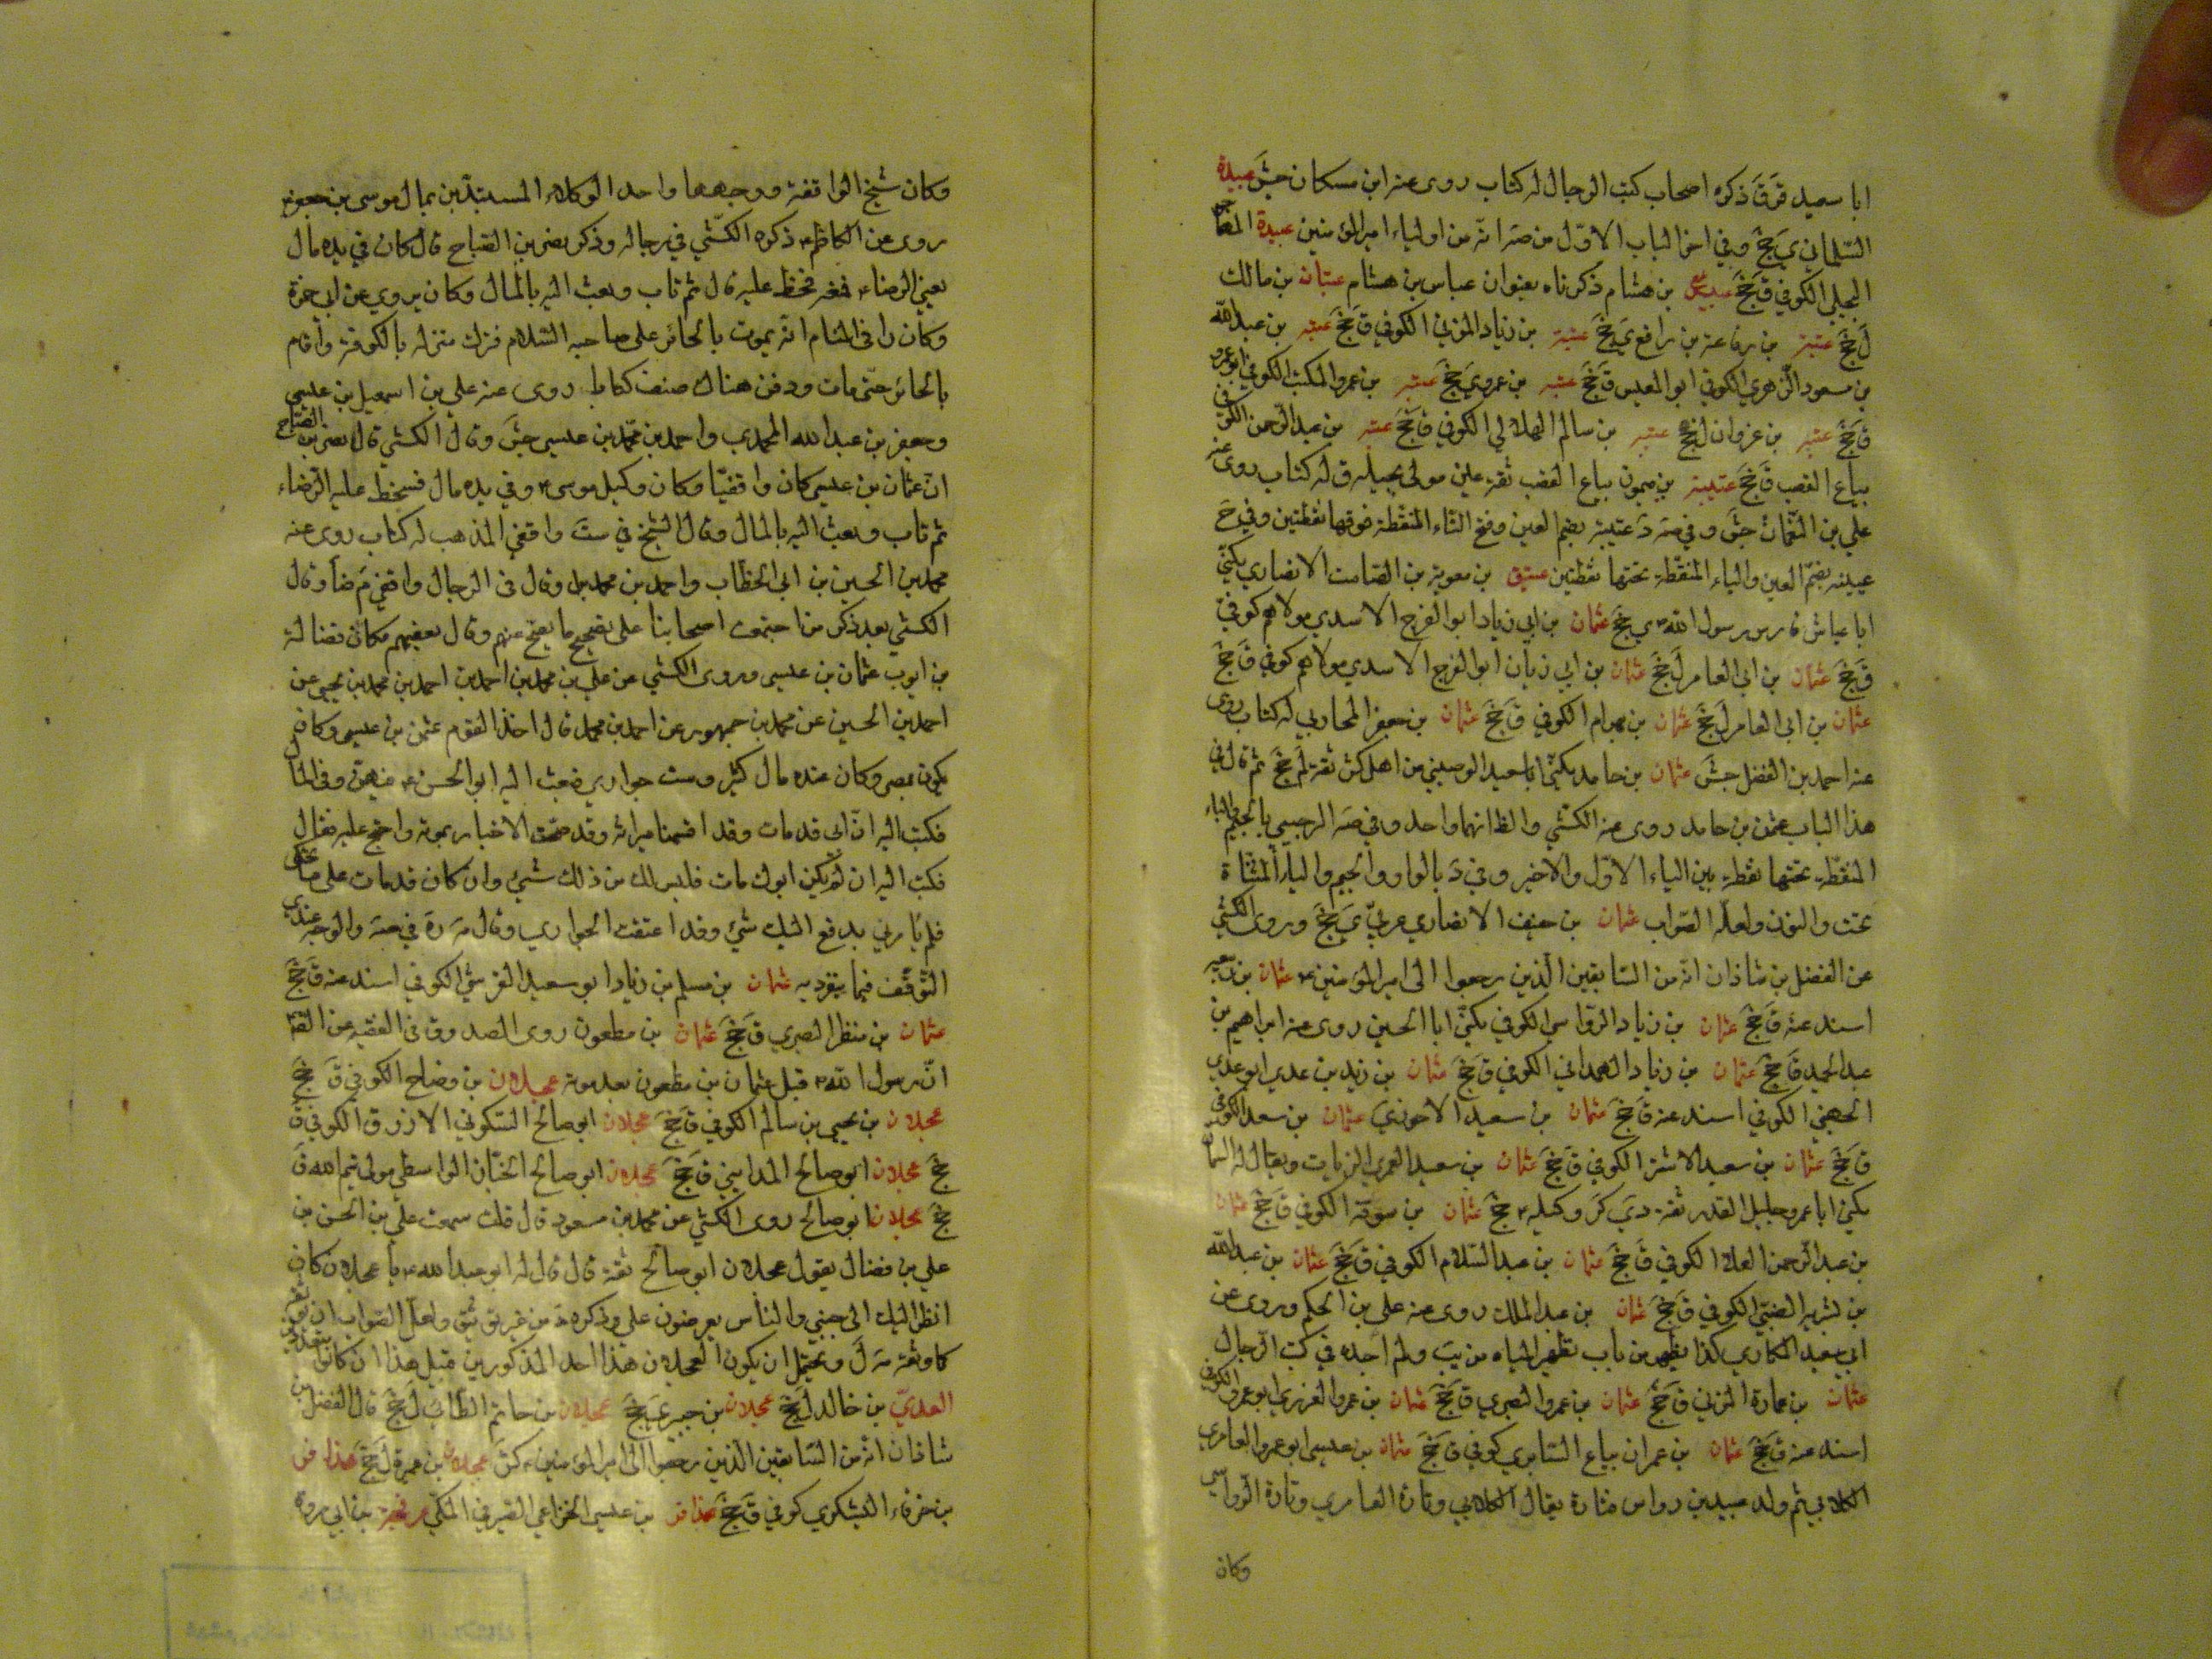 ابا سعيد ق ق ذكره اصحاب كتب الرجال له كتاب روى عنه ابن مسكان جش عبيدة
السلماني ي جخ وفي اخر الباب الاول من صه انه من اولياء امير المؤمنين عبيدة
البجلي الكوفي ق جخ بن هشام ذكرناه بعنوان عباس بن هشام عتبان بن مالك
ل جخ عتبة بن رفاعة بن رافع ي جخ عتبة بن زياد المزني الكوفي ق جخ عتبه بن عبد الله
بن مسعود الزهري الكوفي ابو العميس ق جخ عتبه بن عمرو ي جخ عتبه بن عمرو المكتب الكوفي
ق جخ عتبه بن غزوان ل جخ عتبه بن سالم الهلالي الكوفي ق جخ عتبه بن عبد الرحمن الكوفي
بياع القصب ق جخ عتيبة بن ميمون بياع القصب ثقة عين مولى بجيلة ق له كتاب روى عنه
علي بن النعمان جش وفي صه د عتيبة بضم العين وفتح التاء المنقطة فوقها نقطتين وفي ح
عيينه بضم العين والياء المنقطة تحتها نقطتين عتيق بن معوية بن الصامت الانصاري يكنى
ابا عياش فارس رسول الله ص ي جخ عثمان بن ابي زياد ابو الفرج الاسدي مولاهم كوفي
ق جخ عثمان بن ابي العاص ل جخ عثمان بن ابي زيان ابو الفرج الاسدي مولاهم كوفي ق جخ
عثمان بن ابي العاص ل جخ عثمان بن بهرام الكوفي ق جخ عثمان بن جعفر المحاربي له كتاب روى
عنه احمد بن الفضل جش عثمان بن حامد يكنى ابا سعيد الوجيني من اهل كش ثقة لم جخ ثم قال في
هذا الباب عثمن بن حامد روى عنه الكشي والظ انهما واحد وفي صه الرجيبي بالجيم والباء
المنقطة تحتها نقطة بين الياء الاول والاخير وفي د بالواو والجيم والياء المثناة
تحت والنون ولعله الصواب عثمان بن حنيف الانصاري عربي ي جخ وروى الكشي
عن الفضل بن شاذان انه من السابقين الذين رجعوا الى امير المؤمنين ع عثمان بن
اسند عنه ق جخ عثمان بن زياد الرواسي الكوفي يكنى ابا الحسين روى عنه ابراهيم بن
عبد الحميد ق جخ عثمان بن زياد الهمداني الكوفي ق جخ عثمان بن زيد بن عدي ابو عدي
الجهني الكوفي اسند عنه ق جخ عثمان بن سعيد الاحوزي عثمان بن سعد الكوفي
ق جخ عثمان بن سعيد الاشتر الكوفي ق جخ عثمان بن سعيد العمري الزيات ويقال له السمان
يكنى ابا عمرو جليل القدر ثقة دي كر وكيله ع جخ عثمان بن سوقة الكوفي ق جخ عثمان
بن عبد الرحمن الكوفي ق جخ عثمان بن عبد السلام الكوفي ق جخ عثمان بن عبد الله
بن بشربه الضبي الكوفي ق جخ عثمان بن عبد الملك روى عنه علي بن الحكم وروى عن
ابي سعيد المكاري كذا يظهر من باب تطهير المياه من يب ولم اجده في كتب الرجال
عثمان بن عمارة المزني ق جخ عثمان بن عمرو البصري ق جخ عثمان بن عمرو ابو عمرو الكوفي
اسند عنه ق جخ عثمان بن عمران بياع السابري كوفي ق جخ عثمان بن عيسى ابو عمرو العامري
الكلابي ثم ولد عبيد بن رواس فتارة يقال الكلابي وتارة العامري وتارة الرواسي
وكان
وكان شيخ الواقفة ووجهها واحد الوكلاء المستبدين بمال موسى بن جعفر
روى عن الكاظم ع ذكره الكشي في رجاله وذكر نصر بن الصباح قال كان في يده مال
يعني الرضاء ع فمنعه فسخط عليه قال ثم تاب وبعث اليه بالمال وكان يروي عن ابي حمزة
وكان راى في المنام انه يموت بالحائر على صاحبه السلام فترك منزله بالكوفة واقام
بالحائر حتى مات ودفن هناك صنف كتابا روى عنه علي بن اسمعيل بن عيسى
وجعفر بن عبد الله المحمدي واحمد بن محمد بن عيسى جش وقال الكشي قال نصر بن الصباح
ان عثمان بن عيسى كان واقفيا وكان وكيل موسى ع وفي يده مال فسخط عليه الرضاء
ثم تاب وبعث اليه بالمال وقال الشيخ في ست واقفي المذهب له كتاب روى عنه
محمد بن الحسين بن ابي الخطاب واحمد بن محمد وقال في الرجال واقفي م ضا وقال
الكشي بعد ذكر من اجتمعت اصحابنا على تصحيح ما يصح عنهم وقال بعضهم مكان فضالة
بن ايوب عثمان بن عيسى وروى الكشي عن علي بن محمد بن احمد بن محمد بن يحيى عن
احمد بن الحسين عن محمد بن جمهور عن احمد بن محمد قال احد القوم عثمن بن عيسى وكان
يكون بمصر وكان عنده مال كثير وست جواري فبعث اليه ابو الحسن ع فيهن وفي المال
فكتب اليه ان ابي قد مات وقد اقتسمنا ميراثه وقد صحت الاخبار بموته واحتج عليه فقال
فكتب اليه ان لم يكن ابوك مات فليس لك من ذلك شئ وان كان قد مات على ما تحكي
فلم يامرني بدفع اليك شئ وقد اعتقت الجواري وقال مه ره في صه والوجه عندي
التوقف فيما ينفرد به عثمان بن مسلم بن زياد ابو سعيد القرشي الكوفي اسند عنه ق جخ
عثمان بن منظر البصري ق جخ عثمان بن مطعون روى الصدوق في الفقيه عن
ان رسول الله ص قبل عثمان بن مظعون بعد موته عجلان بن وضاح الكوفي ق جخ
عجلان بن يحيى بن سالم الكوفي ق جخ عجلان ابو صالح السكوني الازرق الكوفي ق
جخ عجلان ابو صالح المدايني ق جخ عجلان ابو صالح الخباز الواسطي مولى تيم الله ق
جخ عجلان ابو صالح روى الكشي عن محمد بن مسعود قال سمعت علي بن الحسن بن
علي بن فضال يقول عجلان ابو صالح ثقة قال قال له ابو عبد الله ع يا عجلان كاني
انظر اليك الى جنبي والناس يعرضون علي وذكره من غير توثيق ولعل الصواب
ويحتمل ان يكون العجلان هذا احد المذكورين قبل هذا ان كانوا
بن خالد ل جخ عجلان بن جبير ي جخ بن حاتم الطائي ل جخ قال الفضل بن
شاذان انه من السابقين الذين رجعوا الى امير المؤمنين ع كش بن عميرة ل جخ
اليشكري كوفي ق جخ عذافر بن عيسى الخزاعي الصيرفي